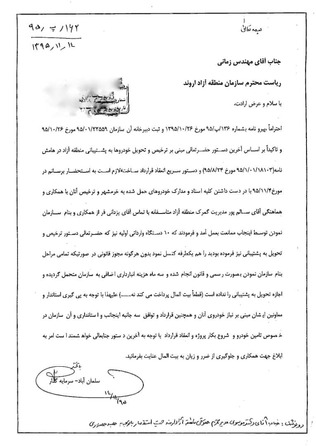 بسمه تعالی
۹۵/پ/۱۶۲
۱۳۹۵/۱۱/۱۲
جناب آقای مهندس زمانی
ریاست محترم سازمان منطقه آزاد اروند
با سلام و عرض ارادت،
احتراما پیرو نامه بشماره ۱۳۶/پ/۹۵ مورخ ۱۳۹۵/۱۰/۲۶ و ثبت دبیرخانه آن سازمان ۹۵/۰۱/۲۲۵۵۹ مورخ ۹۵/۱۰/۲۶
و تاکید بر اساس آخرین دستور حضرتعالی مبنی بر ترخیص و تحویل خودروها به پشتیبانی منطقه آزاد در هامش
نامه(۹۵/۱/۰۱/۱۸۱۰۳ مورخ ۹۵/۸/۲۴) و دستور سریع انعقاد قرارداد لازم است به استحضار برسانم در
مورخ ۹۵/۱۱/۴ با در دست داشتن کلیه اسناد و مدارک خودروهای حمل شده به خرمشهر و ترخیص آنان با همکاری و
هماهنگی آقای سالم پور مدیریت گمرک منطقه آزاد متاسفانه با تماس آقای یزدانی فر از همکاری و بنام سازمان
نمودن توسط اینجانب ممانعت بعمل آمد و فرمودند که ۱۰ دستگاه وارداتی اولیه نیز که حضرتعالی دستور ترخیص و
تحویل به پشتیبانی نیز فرموده بودید را هم یکطرفه کنسل نمود بدون هرگونه مجوز قانونی در صورتیکه تمامی مراحل
بنام سازمان نمودن بصورت رسمی و قانونی انجام شده و سه ماه هزینه انبارداری اضافی به سازمان متحمل گردیده و
اجازه تحویل به پشتیبانی را نداده است (قطعاً بیت المال پرداخت می کند نه......) علیهذا با توجه به پی گیری استاندار و
معاونین ایشان مبنی بر نیاز خودروی آنان و همچنین قرارداد و توافق سه جانبه اینجانب و استانداری و آن سازمان در
خصوص تامین خودرو و شروع بکار پروژه و انعقاد قرارداد با توجه به آخرین دستور جنابعالی خواهشمند است امر به
ابلاغ جهت همکاری و جلوگیری از ضرر و زیان به بیت المال عنایت بفرمائید.
سلمان آباد- سرمایه گذار
رونوشت: جناب آقای دکتر موسوی